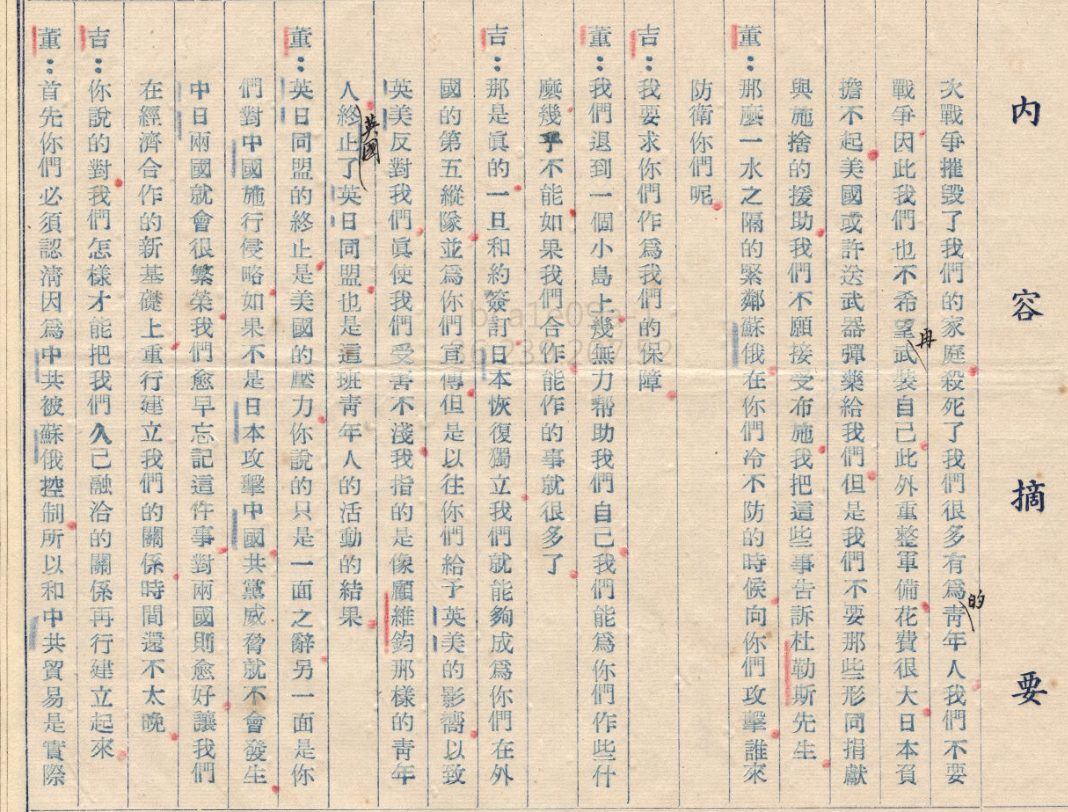 內容摘要
次戰爭摧毀了我們的家庭殺死了我們很多有爲的靑年人我們不要
戰爭因此我們也不希望再武裝自己此外重整軍備花費很大日本負
擔不起美國或許送武器彈藥給我們但是我們不要那些形同捐獻
與施捨的援助我們不願接受布施我把這些事告訴杜勒斯先生
董：那麼一水之隔的緊鄰蘇俄在你們冷不防的時候向你們攻擊誰來
防衛你們呢
吉：我要求你們作爲我們的保障
董：我們退到一個小島上幾無力帮助我們自己我們能爲你們作些什
麼幾乎不能如果我們合作能作的事就很多了
吉：那是眞的一旦和約簽訂日本恢復獨立我們就能夠成爲你們在外
國的第五縱隊並爲你們宣傳但是以往你們給予英美的影響以致
英美反對我們眞使我們受害不淺我指的是像顧維鈞那樣的靑年
人英國終止了英日同盟也是這班靑年人的活動的結果
董：英日同盟的終止是美國的壓力你說的只是一面之辭另一面是你
們對中國施行侵略如果不是日本攻擊中國共黨威脅就不會發生
中日兩國就會很繁榮我們愈早忘記這件事對兩國則愈好讓我們
在經濟合作的新基礎上重行建立我們的關係時間還不太晚
吉：你說的對我們怎樣才能把我們久已融洽的關係再行建立起來
董：首先你們必須認淸因爲中共被蘇俄控制所以和中共貿易是實際